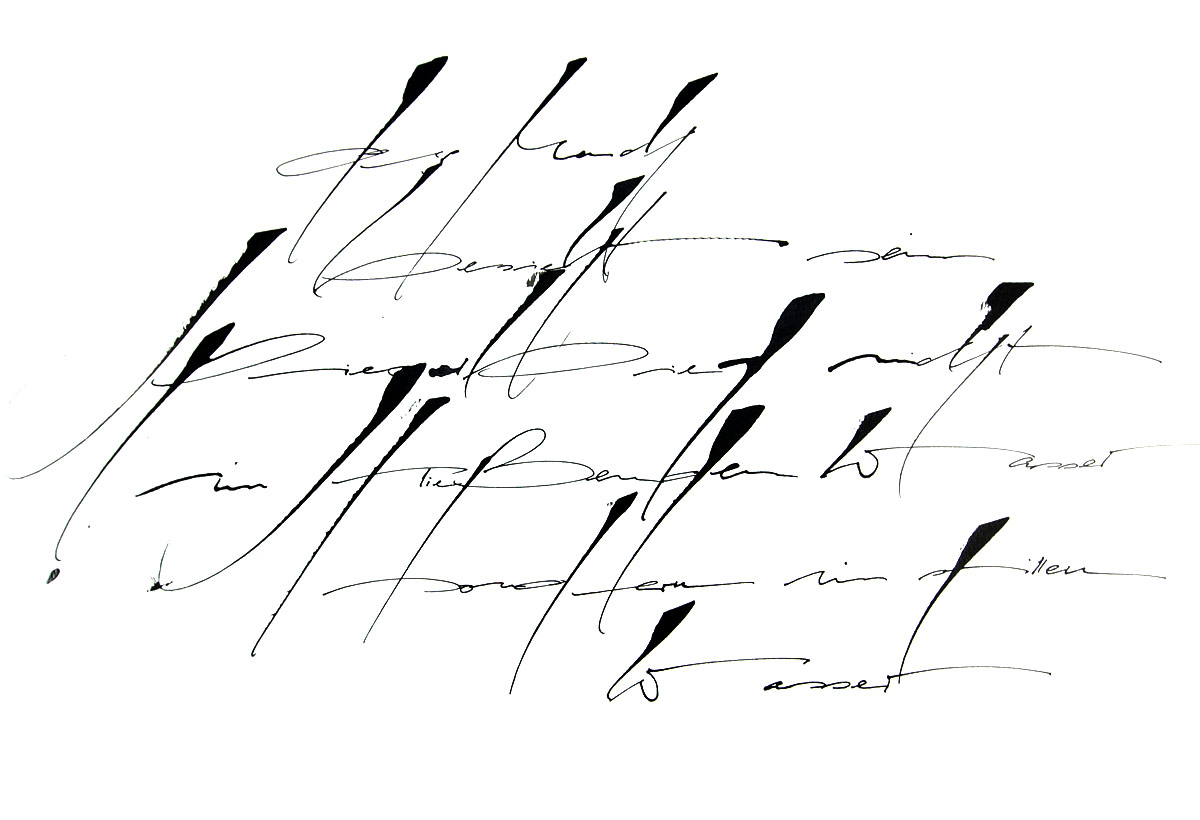 der Mensch
besieht sein
Spiegelbild nicht
im fließenden Wasser
sondern im stillen
Wasser